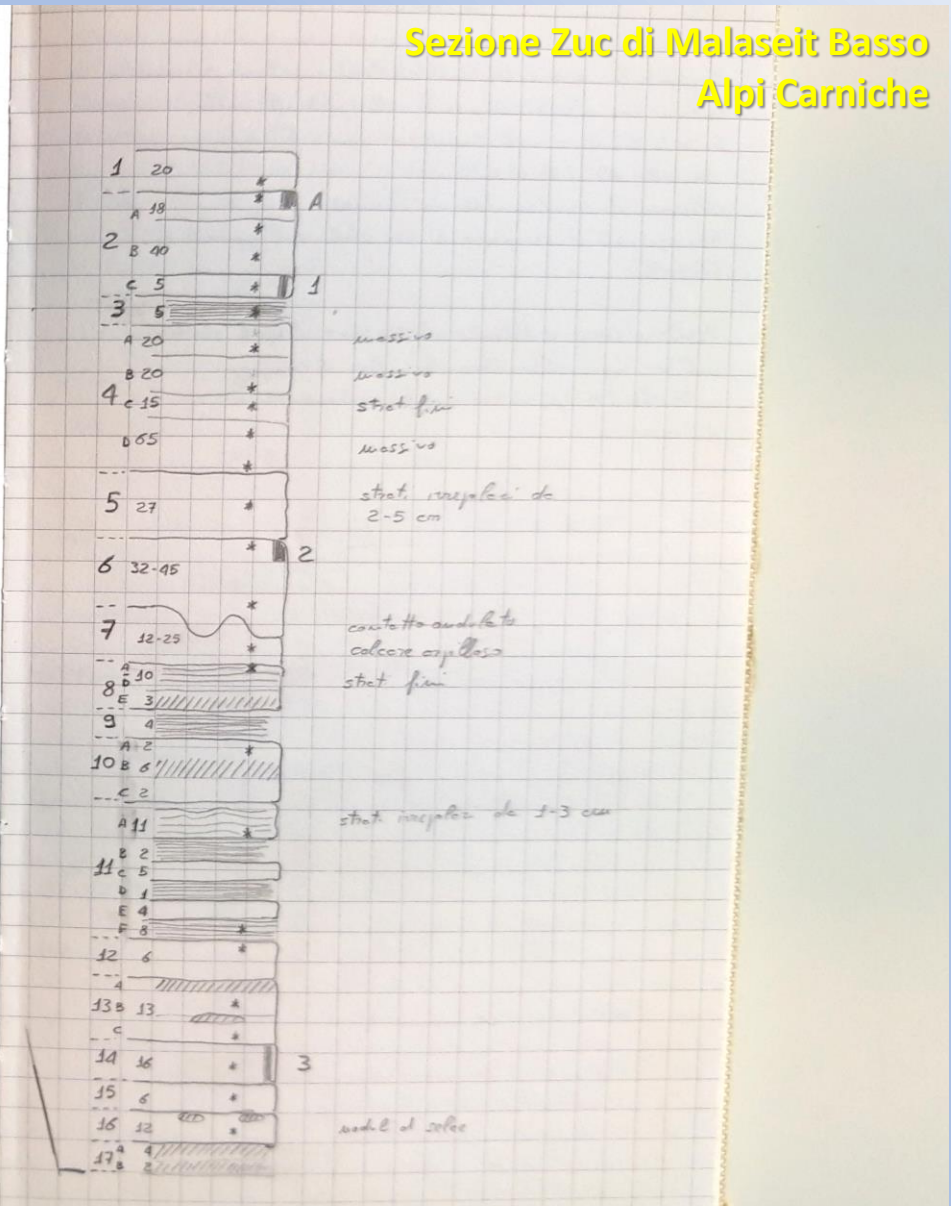 Sezione Zuc di Malaseit Basso
Alpi Carniche
1 20 *
A 18 * A
2 B 40 *
*
C 5 * 1
3 5 *
A 20 * massivo
B 20 * massivo
4 C 15 * strat fini
D 65 * massivo
*
5 27 * strat. irregolari da
2-5 cm
6 32-45 * 2
*
7 12-25 * contatto ondulato
calcare argilloso
A *
8 D 10 strat fini
E 3
9 4
A 2 *
10 B 6
C 2
A 11 * strat. irregolari da 1-3 cm
B 2
11 C 5
D 1
E 4
F 8 *
12 6 *
A
13 B 13 *
C *
14 16 * 3
15 6 *
16 12 * noduli di selce
17 A 4
B 2